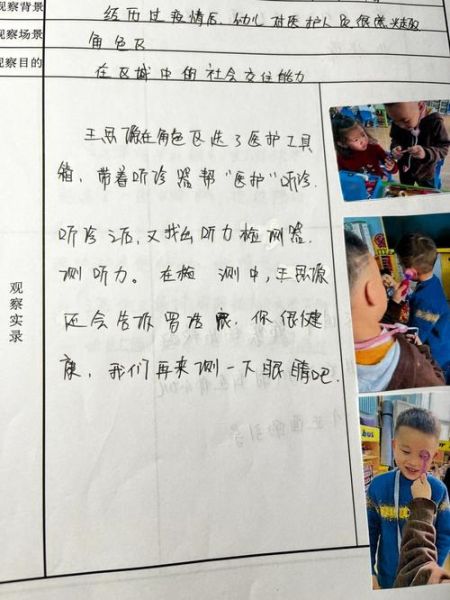 观察背景 经历过疫情后,幼儿对医护人员很感兴趣
观察场景 角色区
观察目的 在区域中的社会交往能力
观察实录
王思源在角色区选了医护工具
箱,带着听诊器帮“医护”听诊.
听诊之后,又找出听力检测器,
测听力。在检 测中,王思源
还会告诉曾浩宸,你很健
康,我们再来测一下眼睛吧.
bus